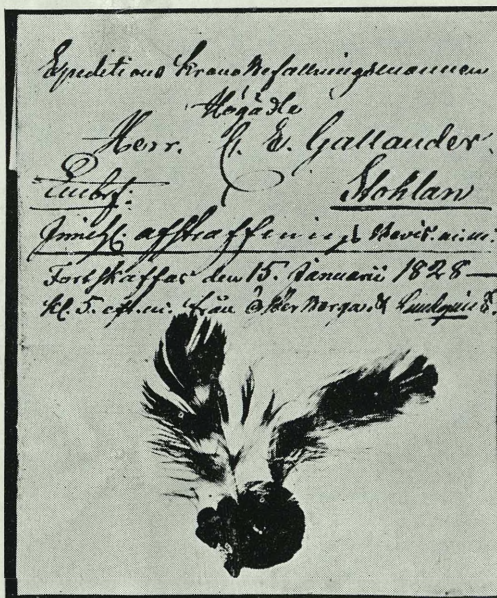 Expeditions Krono Befallningsmannen
Högädle
Herr. G. E. Gallander.
Embf: Stohlan
Innehl. afskaffnings Bevis. m.m:
Fortskaffas den 15. Januarii 1828 —
kl. 5. eft.mi. från Öster Borga